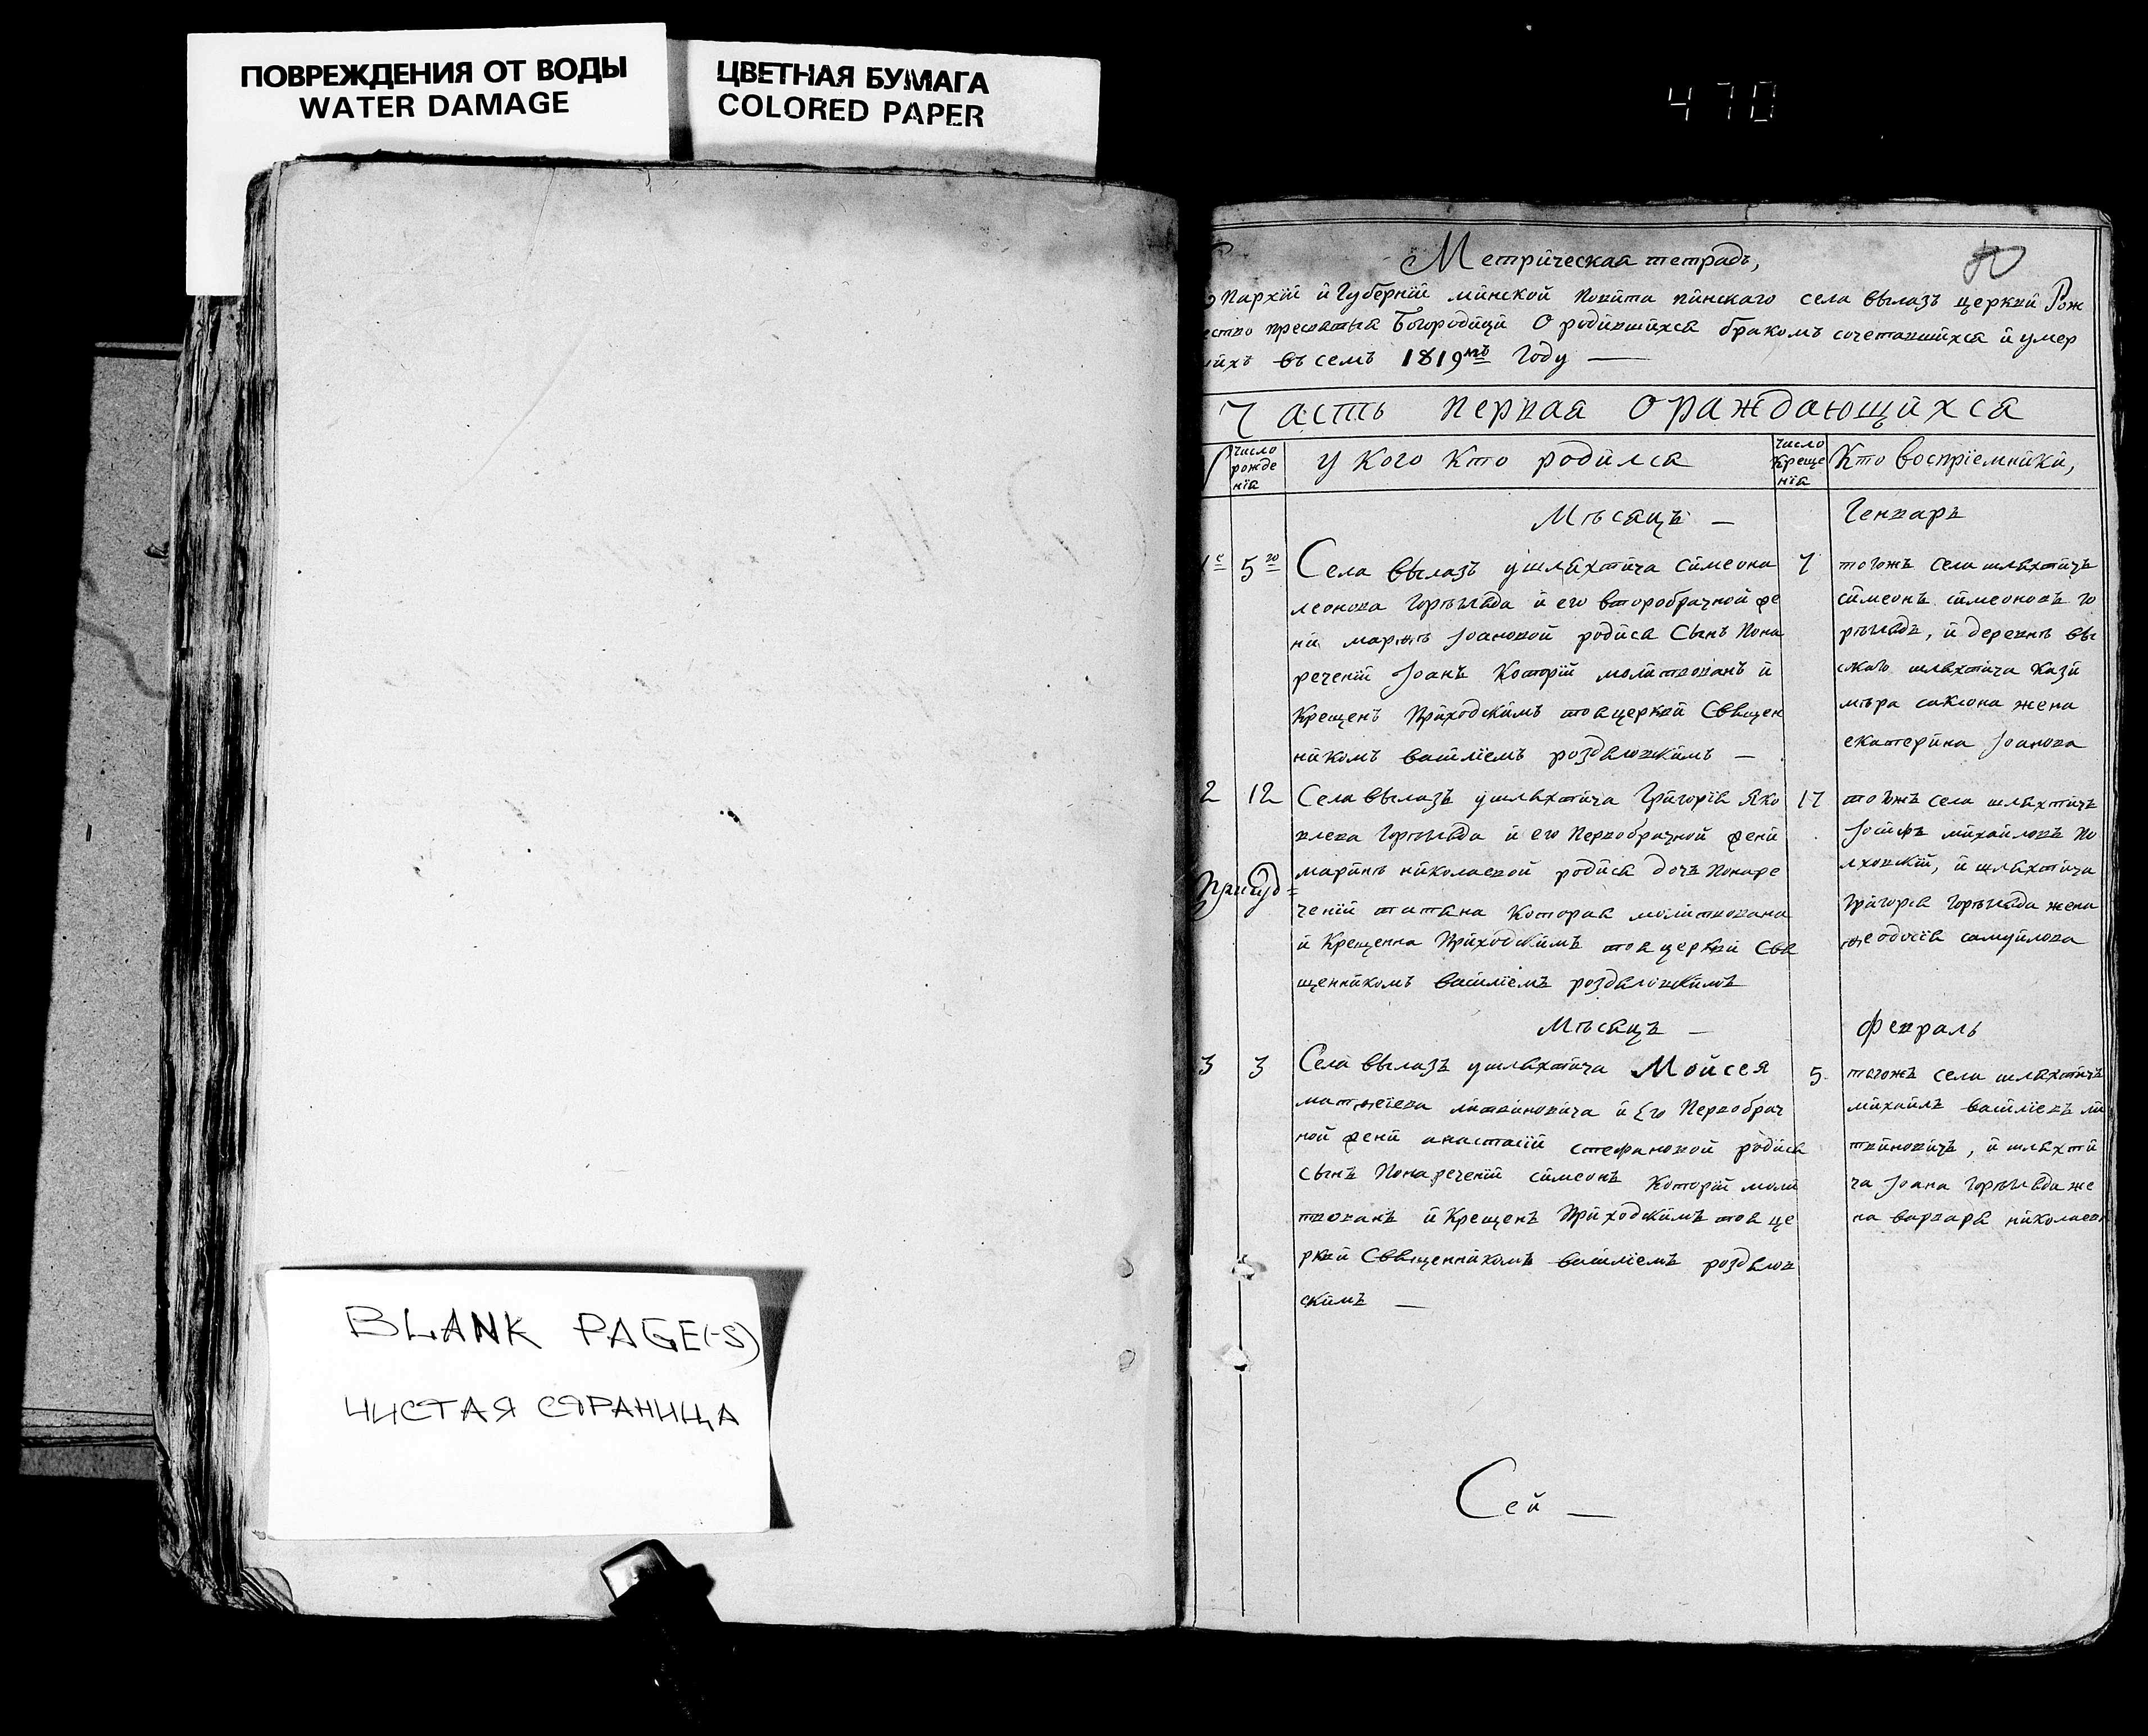 ПОВРЕЖДЕНИЯ ОТ ВОДЫ
WATER DAMAGE
ЦВЕТНАЯ БУМАГА
COLORED PAPER
470
Метрическая тетрадь,
Пархїи и Губернїи минской повита пинскаго села вылазъ церкви Рож
ество пресвятыя Богородици О родившихся бракомъ сочетавшихся и умер
ихъ въ семъ 1819мъ Году —
Часть первая О раждающихся
Число рожде нїя
у кого кто родился
Число креще нїя
Кто воспрїемники,
Мѣсяцъ —
Генварь
1е 5го
Села вылазъ у шляхтича симеона
леонова Гортыляда и его второбрачной же
ни марѳѣ Іоановой родися Сынъ Пона
реченїй Іоанъ Которїй молитвованъ и
Крещенъ Приходскимъ тоя церкви Священ
никомъ василїемъ роздяловскимъ —
7
тогожъ села шляхтичъ
симеонъ симеоновъ го
ртылядъ, и деревнѣ вы
шляхтича Кази
мѣра жена
екатерина Іоанова
2 12
Села вылазъ у шляхтича Григорїя Яко
влева Гортыляда и его Первобрачной жени
маринѣ николаевой родися дочъ Понаре
ченїй татяна Которая молитвована
и Крещенна Приходскимъ тоя церкви Свя
щенникомъ василїемъ роздяловскимъ
17
тогожъ села шляхтичъ
Іосифъ михайловъ По
лховскїй, и шляхтича
Григорїя Гортыляда жена
ѳеодосїя самуйлова
Мѣсяцъ —
Февраль
3 3
Села вылазъ у шляхтича Мойсея
матѳеїева литвиновича и Его Первобрач
ной жени анастасїй стефановой родися
сынъ Понареченїй симеонъ Которїй моли
твованъ и Крещенъ Приходскимъ тоя це
ркви Священникомъ василїемъ роздялов
скимъ —
5
тогожъ села шляхтичъ
михаилъ василїевъ ли
твиновичъ, и шляхти
ча Іоана Гортыляда же
на варвара николаев
Сей —
BLANK PAGE(-S)
ЧИСТАЯ СТРАНИЦА